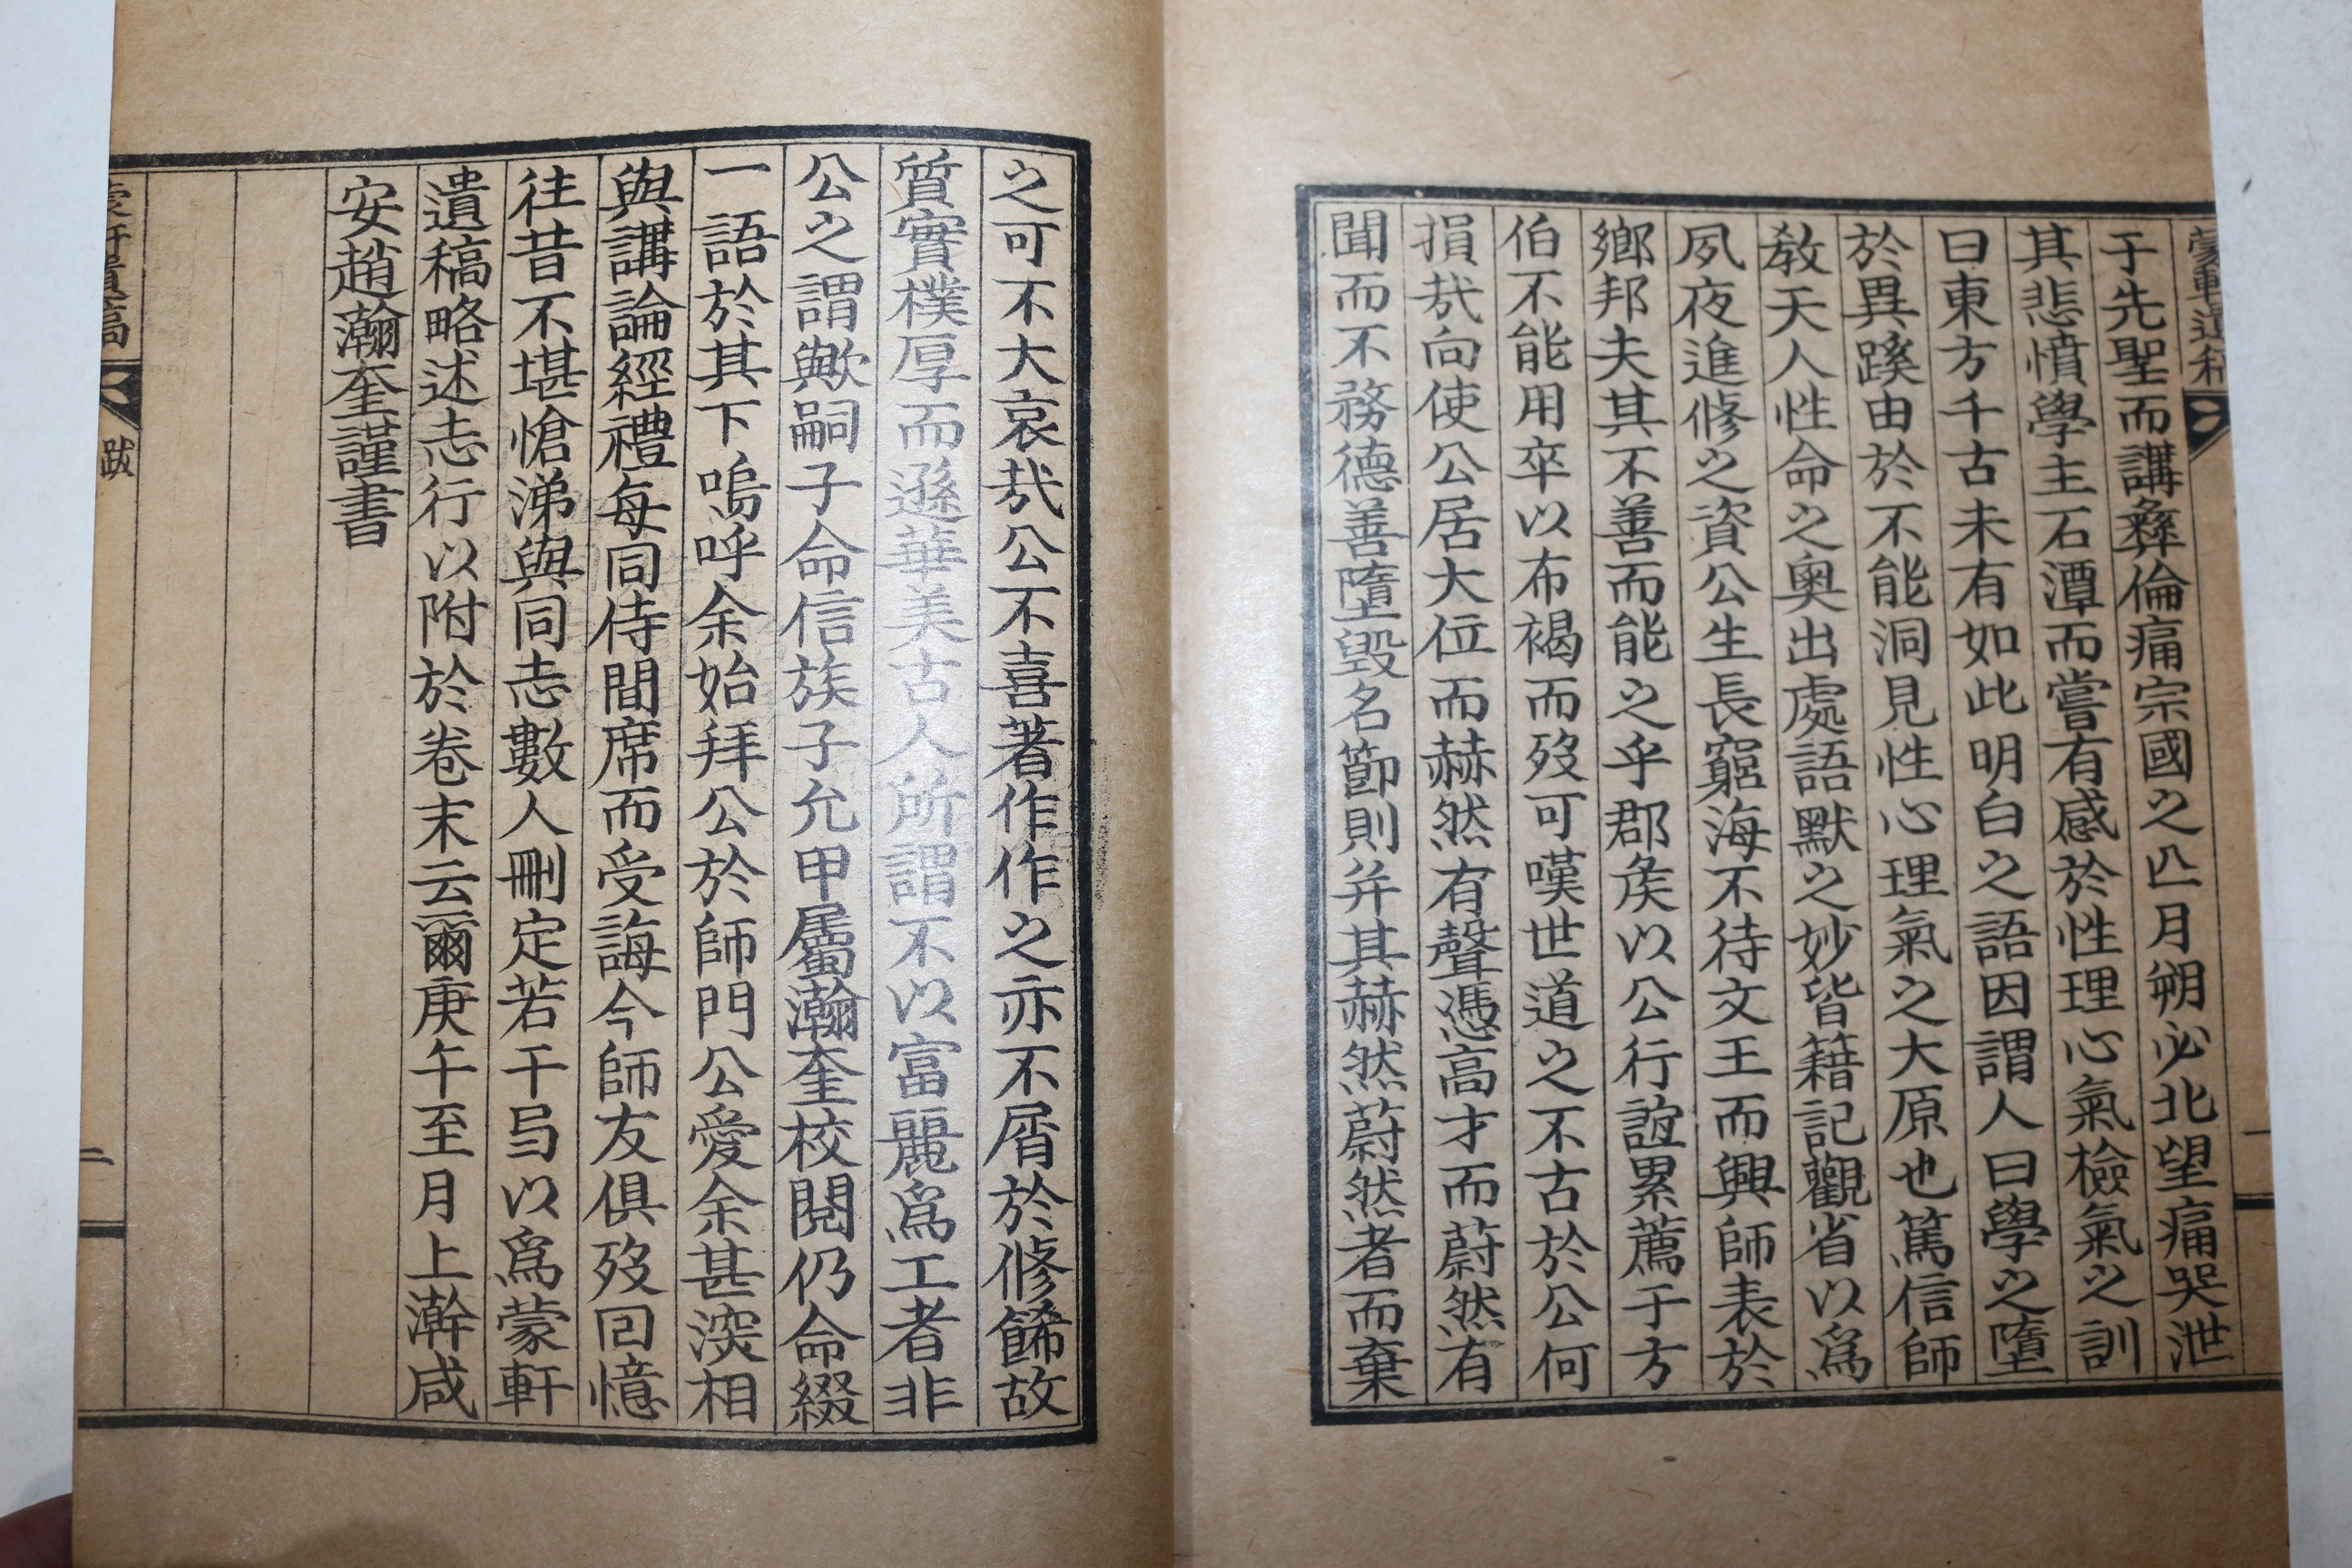 蒙軒遺稿
一
于先聖而講彝倫痛宗國之亡月朔必北望痛哭泄
其悲憤學主石潭而嘗有感於性理心氣檢氣之訓
曰東方千古未有如此明白之語因謂人曰學之墮
於異蹊由於不能洞見性心理氣之大原也篤信師
教天人性命之奧出處語默之妙皆籍記觀省以爲
夙夜進修之資公生長窮海不待文王而興師表於
鄉邦夫其不善而能之乎郡矦以公行誼累薦于方
伯不能用卒以布褐而歿可嘆世道之不古於公何
損㢤向使公居大位而赫然有聲憑高才而蔚然有
聞而不務德善墮毀名節則并其赫然蔚然者而棄
之可不大哀㢤公不喜著作作之亦不屑於修餙故
質實樸厚而遜華美古人所謂不以富麗爲工者非
公之謂歟嗣子命信族子允甲屬瀚奎校閱仍命綴
一語於其下嗚呼余始拜公於師門公愛余甚深相
與講論經禮每同侍間席而受誨今師友俱歿回憶
往昔不堪愴涕與同志數人刪定若干㢧以爲蒙軒
遺稿略述志行以附於卷末云爾庚午至月上澣咸
安趙瀚奎謹書
蒙軒遺稿
跋
二